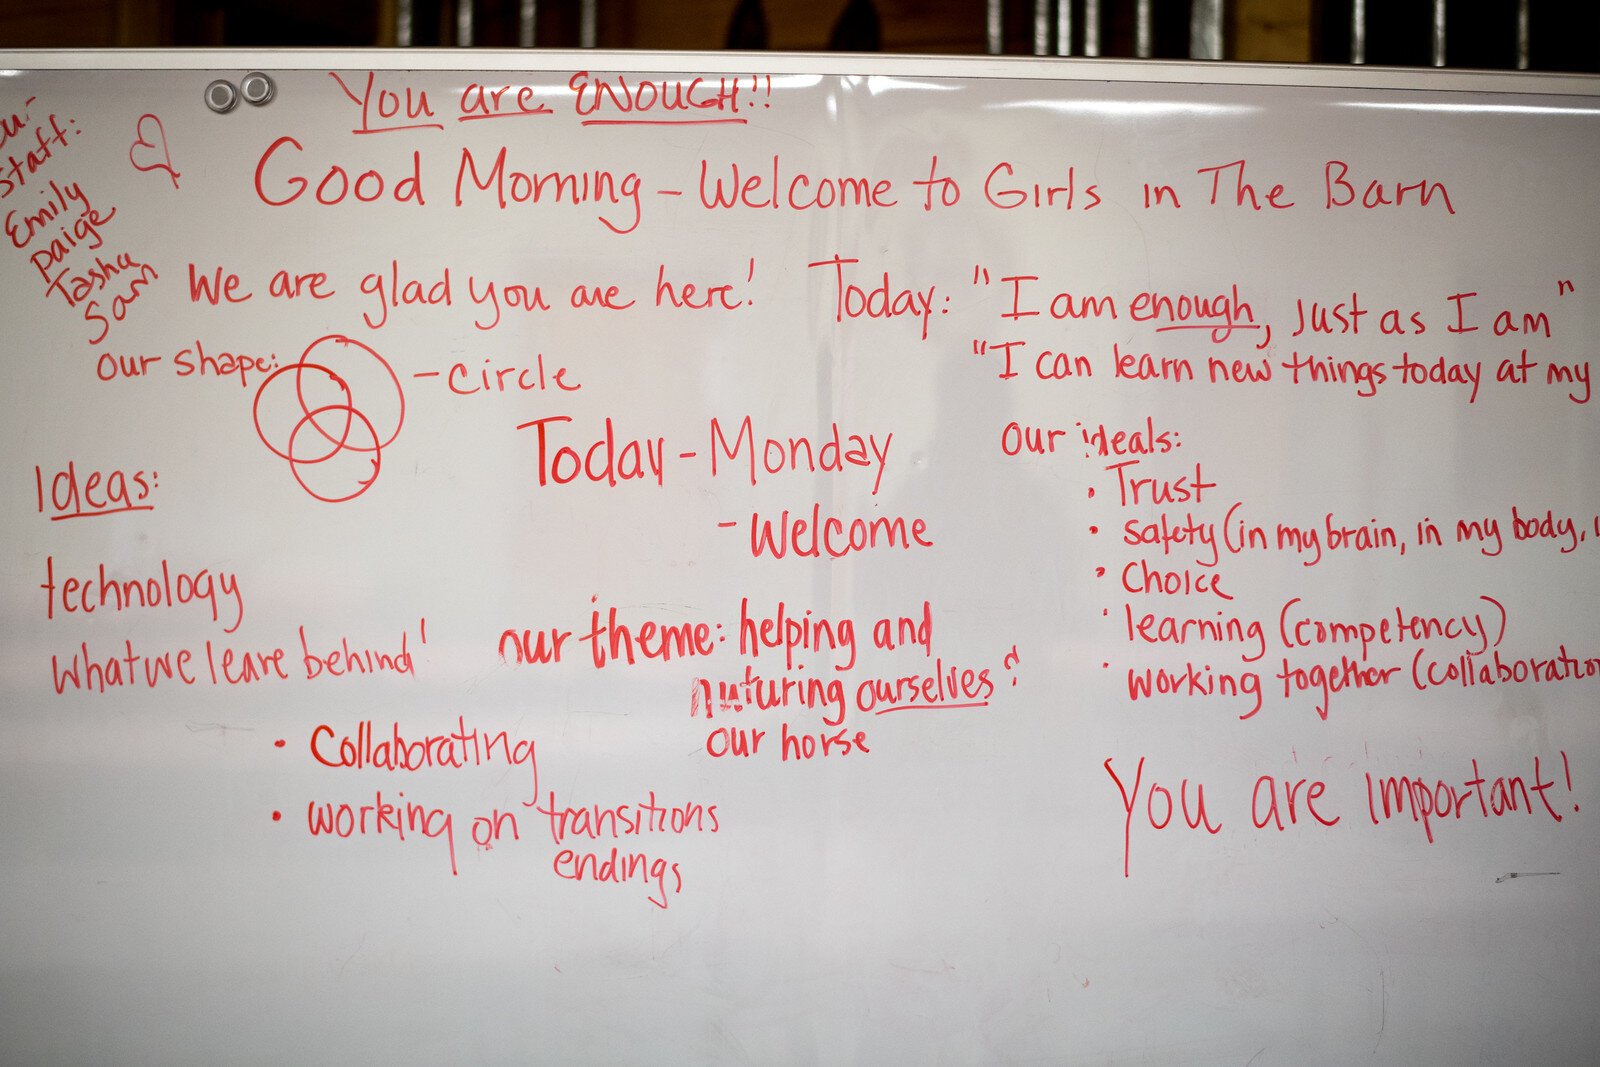 You are ENOUGH!!
Good Morning - Welcome to Girls in The Barn
staff:
Emily
paige
Tasha
Sam
We are glad you are here!
Today: "I am enough, just as I am"
"I can learn new things today at my
our shape: - circle
Today - Monday
- Welcome
our ideals:
• Trust
• safety (in my brain, in my body,
• Choice
• learning (competency)
• working together (collaboratio
Ideas:
technology
what we leave behind!
our theme: helping and
nurturing ourselves &
our horse
• Collaborating
• working on transitions
endings
You are important!